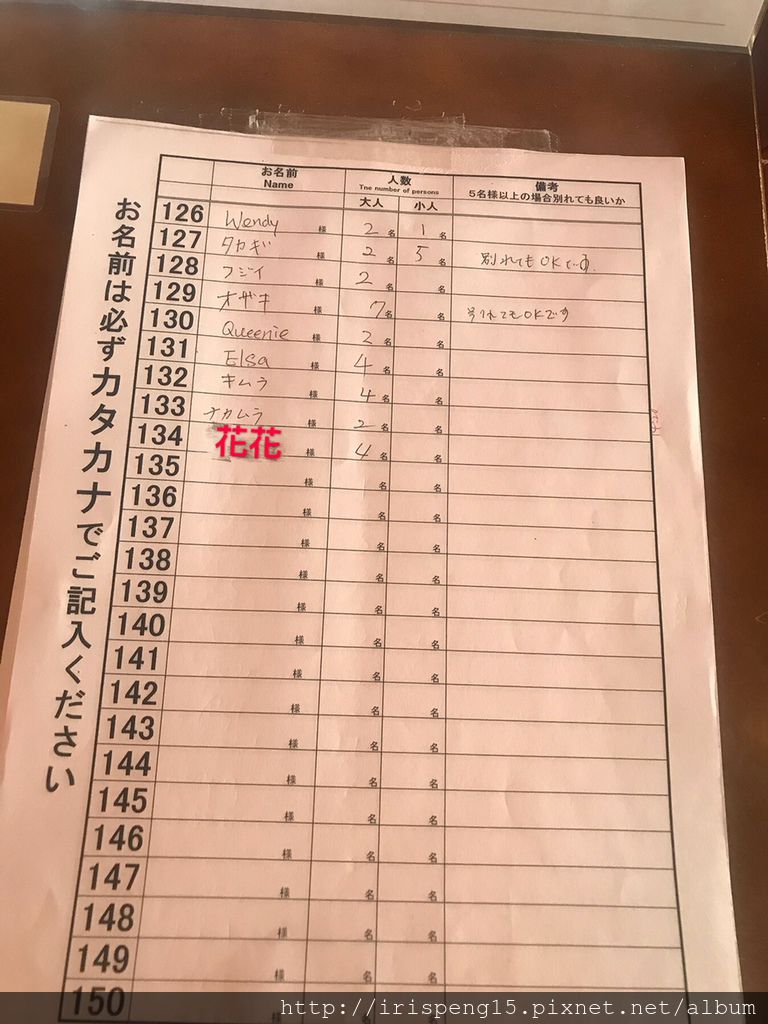 お名前は必ずカタカナでご記入ください
お名前 人数 備考
Name The number of persons 5名様以上の場合別れても良いか
大人 小人
126 Wendy 様 2 名 1 名
127 タカギ 様 2 名 5 名 別れてもOKです.
128 フジイ 様 2 名 名
129 オザキ 様 7 名 名 別れてもOKです
130 Queenie 様 2 名 名
131 Elsa 様 4 名 名
132 キムラ 様 4 名 名
133 ナカムラ 様 2 名 名
134 花花 様 4 名 名
135 様 名 名
136 様 名 名
137 様 名 名
138 様 名 名
139 様 名 名
140 様 名 名
141 様 名 名
142 様 名 名
143 様 名 名
144 様 名 名
145 様 名 名
146 様 名 名
147 様 名 名
148 様 名 名
149 様 名 名
150 様 名 名
http://irispeng15.pixnet.net/album